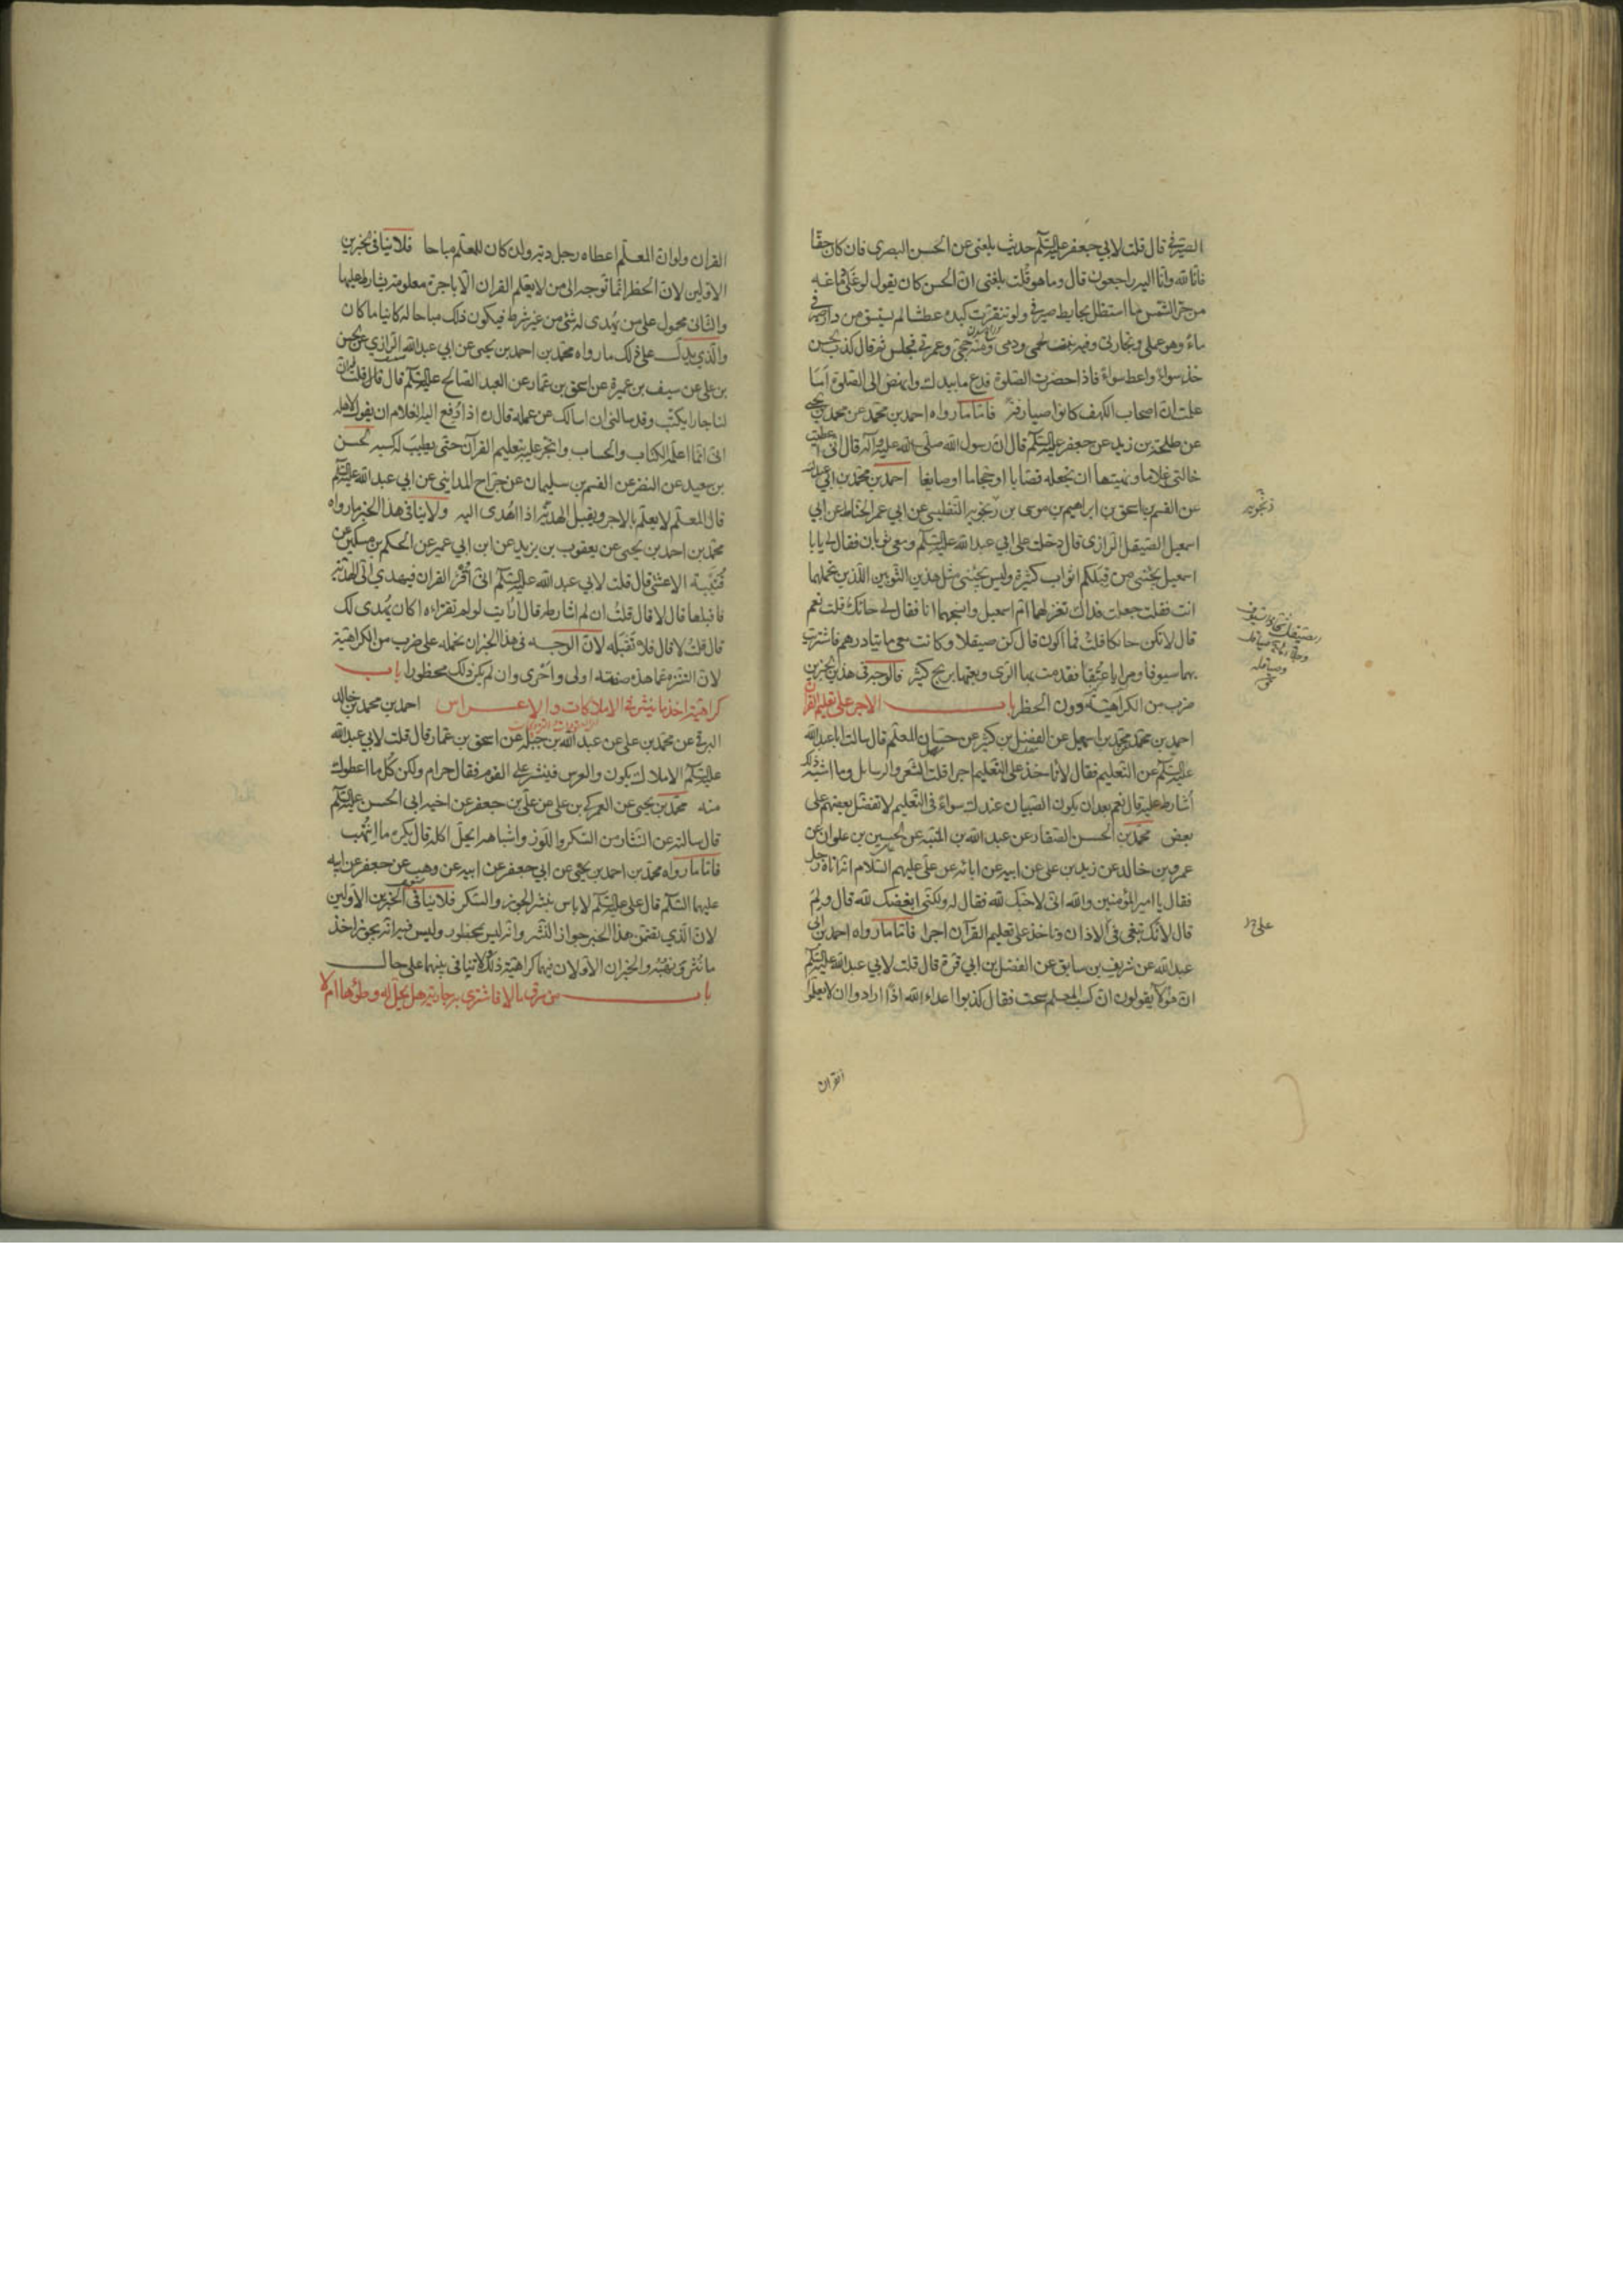 الصيرفي قال قلت لابي جعفر عليه السلم حديث بلغني عن الحسن البصري فان كان حقا
فانا لله وانا اليه راجعون قال وما هو قلت بلغني ان الحسن كان يقول لو غلى دماغه
من حر الشمس ما استظل بحايط صيرفي ولو تفرثت كبده عطشا لم يستسق من دار صيرفي
ماء وهو عملي وتجارتي وفيه نبت لحمي ودمي ومنه حجي وعمرتي فجلس ثم قال كذب الحسن
خذ سواء واعط سواء فاذا حضرت الصلوة فدع ما بيدك وانهض الى الصلوة اما
علمت ان اصحاب الكهف كانوا صيارفة فاما ما رواه احمد بن محمد عن محمد بن يحيى
عن طلحة بن زيد عن جعفر عليه السلم قال ان رسول الله صلى الله عليه وآله قال اني اعطيت
خالتي غلاما ونهيتها ان تجعله قصابا او حجاما او صايغا احمد بن محمد بن ابي عبد الله
عن القسم بن اسحق بن ابراهيم بن موسى بن زنجويه التفليسي عن ابي عمر الحناط عن ابي
اسمعيل الصيقل الرازي قال دخلت على ابي عبد الله عليه السلم ومعي ثوبان فقال لي يابا
اسمعيل يجئني من قبلكم اثواب كثيرة وليس يجئني مثل هذين الثوبين اللذين تحملهما
انت فقلت جعلت فداك تغزلهما ام اسمعيل وانسجهما انا فقال لي حائك قلت نعم
قال لا تكن حائكا قلت فما اكون قال كن صيقلا وكانت معي مايتا درهم فاشتريت
بها سيوفا ومرايا عتقا فقدمت بها الرى وبعتها بربح كثير فالوجه في هذين الخبرين
ضرب من الكراهية دون الحظر باب الاجر على تعليم القرآن
احمد بن محمد عن محمد بن اسمعيل عن الفضل بن كثير عن حسان المعلم قال سالت ابا عبد الله
عليه السلم عن التعليم فقال لا تاخذ على التعليم اجرا قلت الشعر والرسايل وما اشبه ذلك
اشارط عليه قال نعم بعد ان يكون الصبيان عندك سواء في التعليم لا تفضل بعضهم على
بعض محمد بن الحسن الصفار عن عبد الله بن المنبه عن الحسين بن علوان عن
عمرو بن خالد عن زيد بن علي عن ابيه عن ابائه عن علي عليهم السلام انه اتاه رجل
فقال يا امير المؤمنين والله اني لاحبك لله فقال له ولكني ابغضك لله قال ولم
قال لانك تبغي في الاذان وتاخذ على تعليم القرآن اجرا فاما ما رواه احمد بن ابي
عبد الله عن شريف بن سابق عن الفضل بن ابي قرة قال قلت لابي عبد الله عليه السلم
ان هؤلاء يقولون ان كسب المعلم سحت فقال كذبوا اعداء الله انما ارادوا ان لا يعلموا
القران
زنجويه
على
القران ولو ان المعلم اعطاه رجل دية ولده كان للمعلم مباحا فلا ينافي الخبرين
الاولين لان الحظر انما توجه الى من لا يعلم القران الا باجرة معلومة يشارط عليها
والثاني محمول على من يهدى له شئ من غير شرط فيكون ذلك مباحا له كائنا ما كان
والذي يدل على ذلك ما رواه محمد بن احمد بن يحيى عن ابي عبد الله الرازي عن الحسن
بن علي عن سيف بن عميرة عن اسحق بن عمار عن العبد الصالح عليه السلم قال قلت ان
لنا جارا يكتب وقد سالني ان اسالك عن عمله قال مره اذا دفع اليه الغلام ان يقول لاهله
اني انما اعلمه الكتاب والحساب واتجر عليه بتعليم القرآن حتى يطيب له كسبه الحسين
بن سعيد عن النضر عن القسم بن سليمان عن جراح المدايني عن ابي عبد الله عليه السلم
قال المعلم لا يعلم بالاجر ويقبل الهدية اذا اهدى اليه ولا ينافي هذا الخبر ما رواه
محمد بن احمد بن يحيى عن يعقوب بن يزيد عن ابن ابي عمير عن الحكم بن مسكين عن
قتيبة الاعشى قال قلت لابي عبد الله عليه السلم اني اقرئ القران فيهدى الى الهدية
فاقبلها قال لا قال قلت ان لم اشارطه قال ارايت لو لم تقرئه اكان يهدى لك
قال قلت لا قال فلا تقبله لان الوجه في هذا الخبر ان نحمله على ضرب من الكراهية
لان التنزه عما هذه صفته اولى واحرى وان لم يكن ذلك محظورا باب
كراهية اخذ ما ينثر في الاملاكات والاعراس احمد بن محمد بن خالد
البرقي عن محمد بن علي عن عبد الله بن جبلة عن اسحق بن عمار قال قلت لابي عبد الله
عليه السلم الاملاك يكون والعرس فينثر على القوم فقال حرام ولكن كل ما اعطوك
منه محمد بن يحيى عن العمركي بن علي عن علي بن جعفر عن اخيه ابي الحسن عليه السلم
قال سالته عن النثار من السكر واللوز واشباهه ايحل اكله قال يكره ما انتهب
فاما ما رواه محمد بن احمد بن يحيى عن ابي جعفر عن ابيه عن وهب عن جعفر عن ابيه
عليهما السلم قال علي عليه السلم لا باس بنثر الجوز والسكر فلا ينافي الخبرين الاولين
لان الذي يتضمن هذا الخبر جواز النثر وانه ليس بمحظور وليس فيه انه يجوز اخذ
ما نثر ونهبه والخبران الاولان فيهما كراهية ذلك ولا تنافي بينهما على حال
باب من سرق مالا فاشترى به جارية هل يحل له وطؤها ام لا